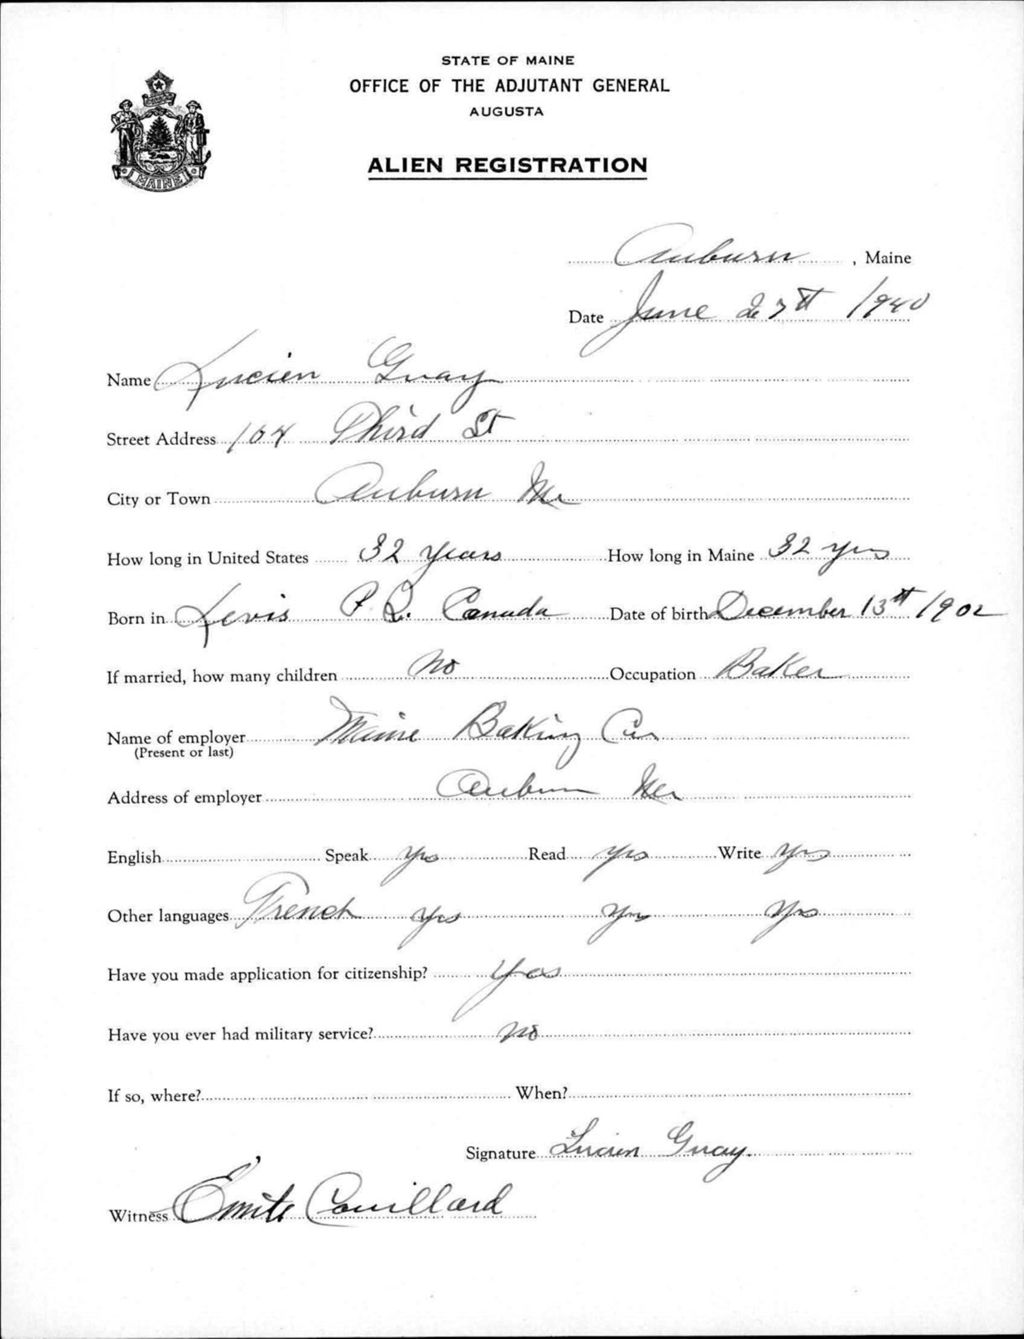 STATE OF MAINE
OFFICE OF THE ADJUTANT GENERAL
AUGUSTA
ALIEN REGISTRATION
MAINE
Auburn, Maine
Date June 27th 1940
Name Lucien Guay
Street Address 164 Third St
City or Town Auburn Me
How long in United States 32 years How long in Maine 32 yrs
Born in Levis P.Q. Canada Date of birth December 13th 1902
If married, how many children No Occupation Baker
Name of employer Maine Baking
(Present or last)
Address of employer Auburn Me
English Speak yes Read yes Write yes
Other languages French yes yes yes
Have you made application for citizenship? yes
Have you ever had military service? no
If so, where? When?
Signature Lucien Guay.
Witness Emile Couillard